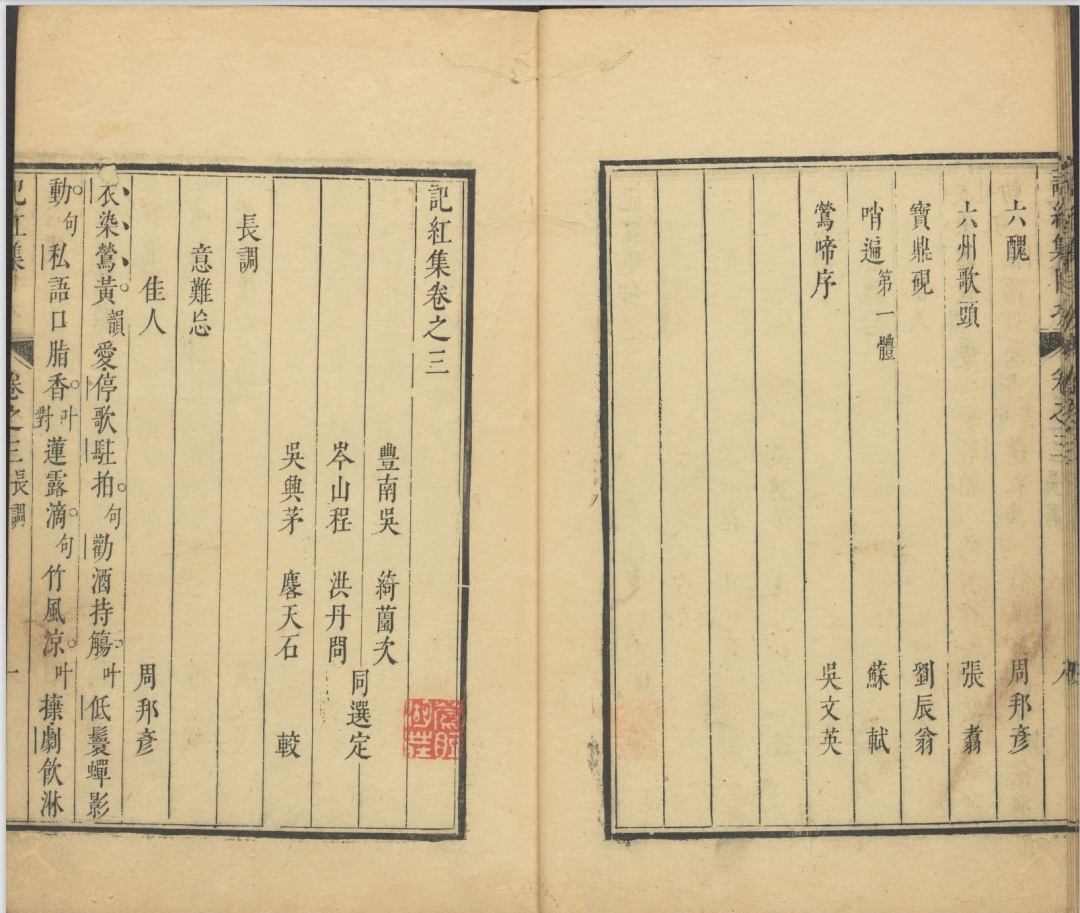 六醜 周邦彥
六州歌頭 張翥
寶鼎硯 劉辰翁
哨遍第一體 蘇軾
鶯啼序 吳文英
記紅集卷之三
豐南吳 綺薗次
岑山程 洪丹問
同選定
吳興茅 麐天石 較
長調
意難忘
佳人 周邦彥
衣染鶯黃韻愛停歌駐拍句勸酒持觴叶低鬟蟬影
動句私語口脂香叶對蓮露滴句竹風涼叶㨿劇飲淋
卷之三 長調 一